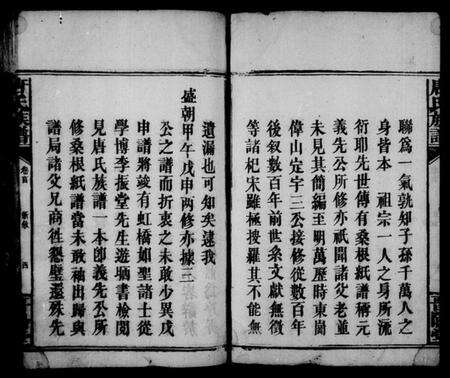 聯為一氣孰知子孫千萬人之
身皆本　祖宗一人之身所流
衍耶先世傳有桑根紙譜稱元
義先公所修亦祇聞諸父老並
未見其簡編至明萬歷時東崗
偉山定宇三公接修從數百年
後叙數百年前世系文獻無徵
等諸杞宋雖極搜羅其不能無
遺漏也可知矣逮我
盛朝甲午戊申两修亦據三
公之譜而折衷之未敢少異戊
申譜將竣有虹橋如聖諸士從
學博李振堂先生遊晒書檢閱
見唐氏族譜一本即義先公所
修桑根紙譜當未敢袖出歸與
譜局諸父兄商徃懇壁還殊先
唐氏族譜
卷首
新叙
四